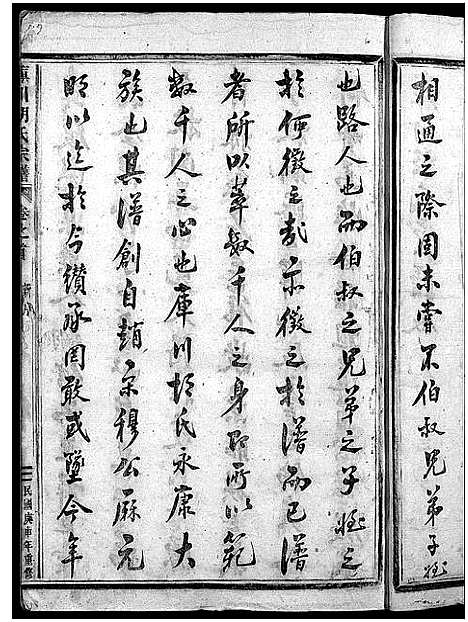 相通之際固未嘗不伯叔兄弟子姪
也路人也而伯叔之兄弟之子姪之
於何徵之哉亦徵之於譜而已譜
者所以萃數千人之身即所以範
數千人之心也庫川胡氏永康大
族也其譜創自趙宋穆公厤元
明以迄於今纘承罔敢或墜今年
庫川胡氏宗譜 卷之首
民國庚申年重修